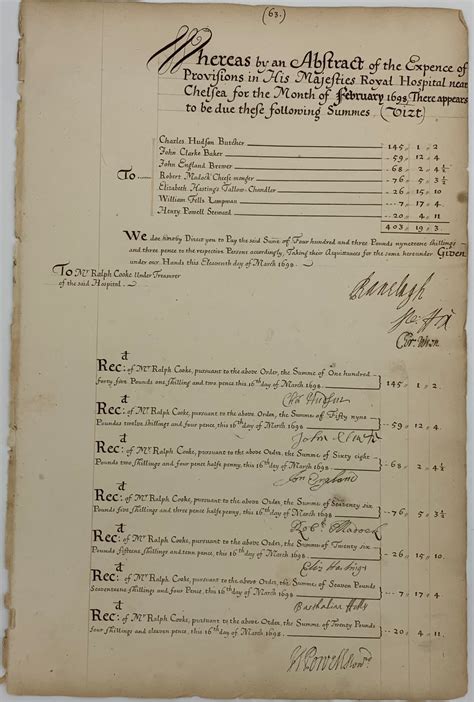 (63.)
Whereas by an Abstract of the Expence of
Provisions in His Majesties Royal Hospital near
Chelsea for the Month of February 1698, There appears
to be due these following Summes (Vizt)
Charles Hudson Butcher 145 " 1 " 2
John Clarke Baker 59 " 12 " 4
John England Brewer 68 " 2 " 4½
To Robert Madock Cheese-monger 76 " 5 " 3½
Elizabeth Hastings Tallow-Chandler 26 " 15 " 10
William Fells Lampman 7 " 17 " 4
Henry Powell Steward 20 " 4 " 11
403 " 19 " 3
We doe hereby Direct you to Pay the said Sume of Four hundred and three Pounds nyneteene shillings
and three pence to the respective Persons accordingly, Taking their Acquittances for the same hereunder Given
under our Hands this Eleaventh day of March 1698.
To Mr. Ralph Cooke Under Treasurer
of the said Hospital.
Ranelagh
Chr: Wren
Recd: of Mr. Ralph Cooke, pursuant to the above Order, the Summe of One hundred
forty five Pounds one shilling and two pence this 16th day of March 1698. 145 " 1 " 2
Cha Hudson
Recd: of Mr. Ralph Cooke, pursuant to the above Order, the Summe of Fifty nyne
Pounds twelve shillings and four pence, this 16th day of March 1698. 59 " 12 " 4
John Clarke
Recd: of Mr. Ralph Cooke, pursuant to the above Order, the Summe of Sixty eight
Pounds two shillings and four pence half penny, this 16th day of March 1698. 68 " 2 " 4½
Jon England
Recd: of Mr. Ralph Cooke, pursuant to the above Order, the Summe of Seaventy six
Pounds five shillings and three pence halfe penny, this 16th day of March 1698. 76 " 5 " 3½
Robt Madock
Recd: of Mr. Ralph Cooke, pursuant to the above Order, the Summe of Twenty six
Pounds fifteene shillings and tenn pence, this 16th day of March 1698. 26 " 15 " 10
Eliz Hastings
Recd: of Mr. Ralph Cooke, pursuant to the above Order, the Summe of Seaven Pounds
Seaventeene shillings and four Pence, this 16th day of March 1698. 7 " 17 " 4
Recd: of Mr. Ralph Cooke, pursuant to the above Order, the Summe of Twenty Pounds
four shillings and eleaven pence, this 16th day of March 1698. 20 " 4 " 11
HPowell